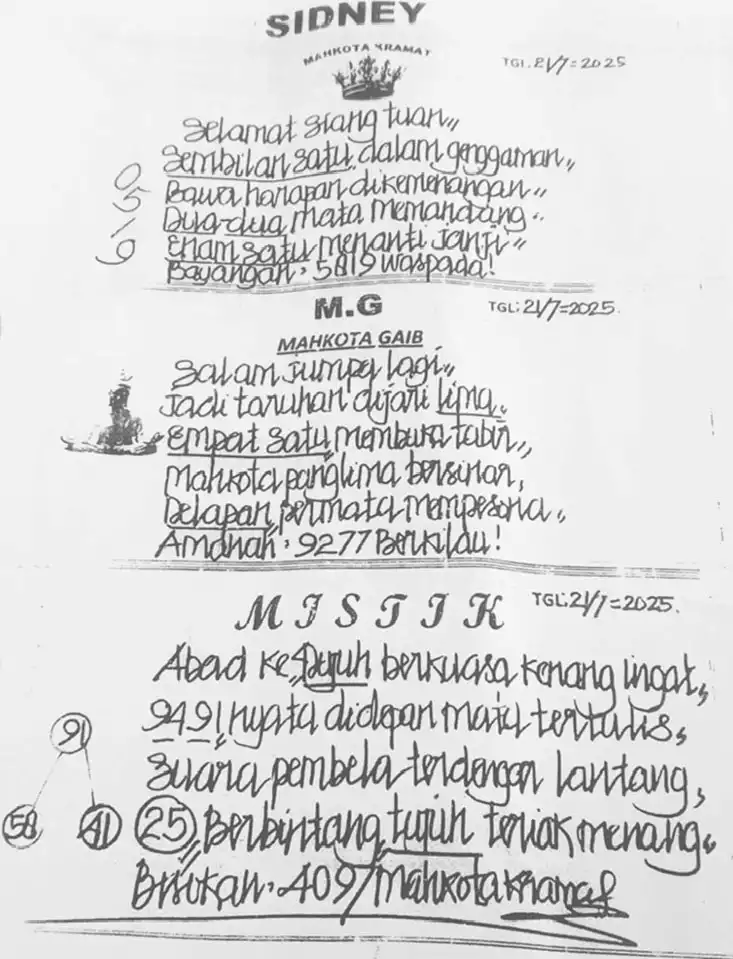 SIDNEY
MAHKOTA KRAMAT
TGl. 21/7=2025
Selamat siang tuan,,
Sembilan satu dalam genggaman,,
Bawa harapan dikemenangan,,
Dua-dua mata memandang..
Enam satu menanti janji,,
Bayangan, 5819 waspada!
M.G
TGL: 21/7=2025.
MAHKOTA GAIB
Salam jumpa lagi,,
Jadi taruhan dijari lima,
Empat satu membuka tabir,,
Mahkota panglima bersinar,
Delapan, permata mempesona,,
Amanah, 9277 Berkilau!
MISTIK
TGL: 21/7=2025.
Abad ke tujuh berkuasa kenang ingat,,
9491 nyata didepan mata tertulis,
Suara pembela terdengar lantang,
25 Berbintang tujuh teriak menang,,
Bisikan, 4097 Mahkota kramat
0519
91
58
41